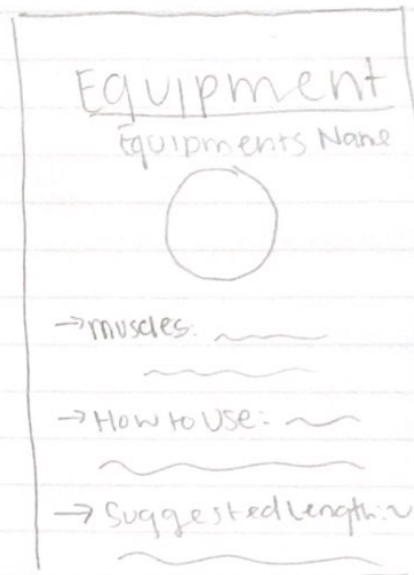 Equipment
Equipments Name
→muscles:
→How to use:
→Suggested length: